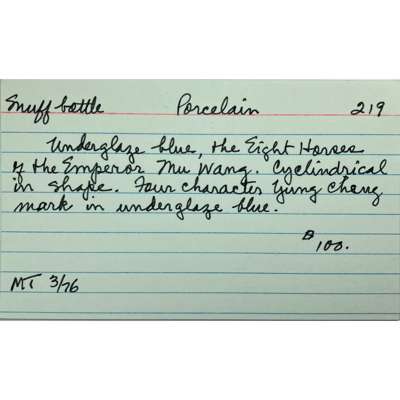 Snuff bottle Porcelain 219
Underglaze blue, the Eight Horses
of the Emperor Mu Wang. Cyclindrical
in shape. Four character Yung Cheng
mark in underglaze blue.
B 100.
MT 3/76